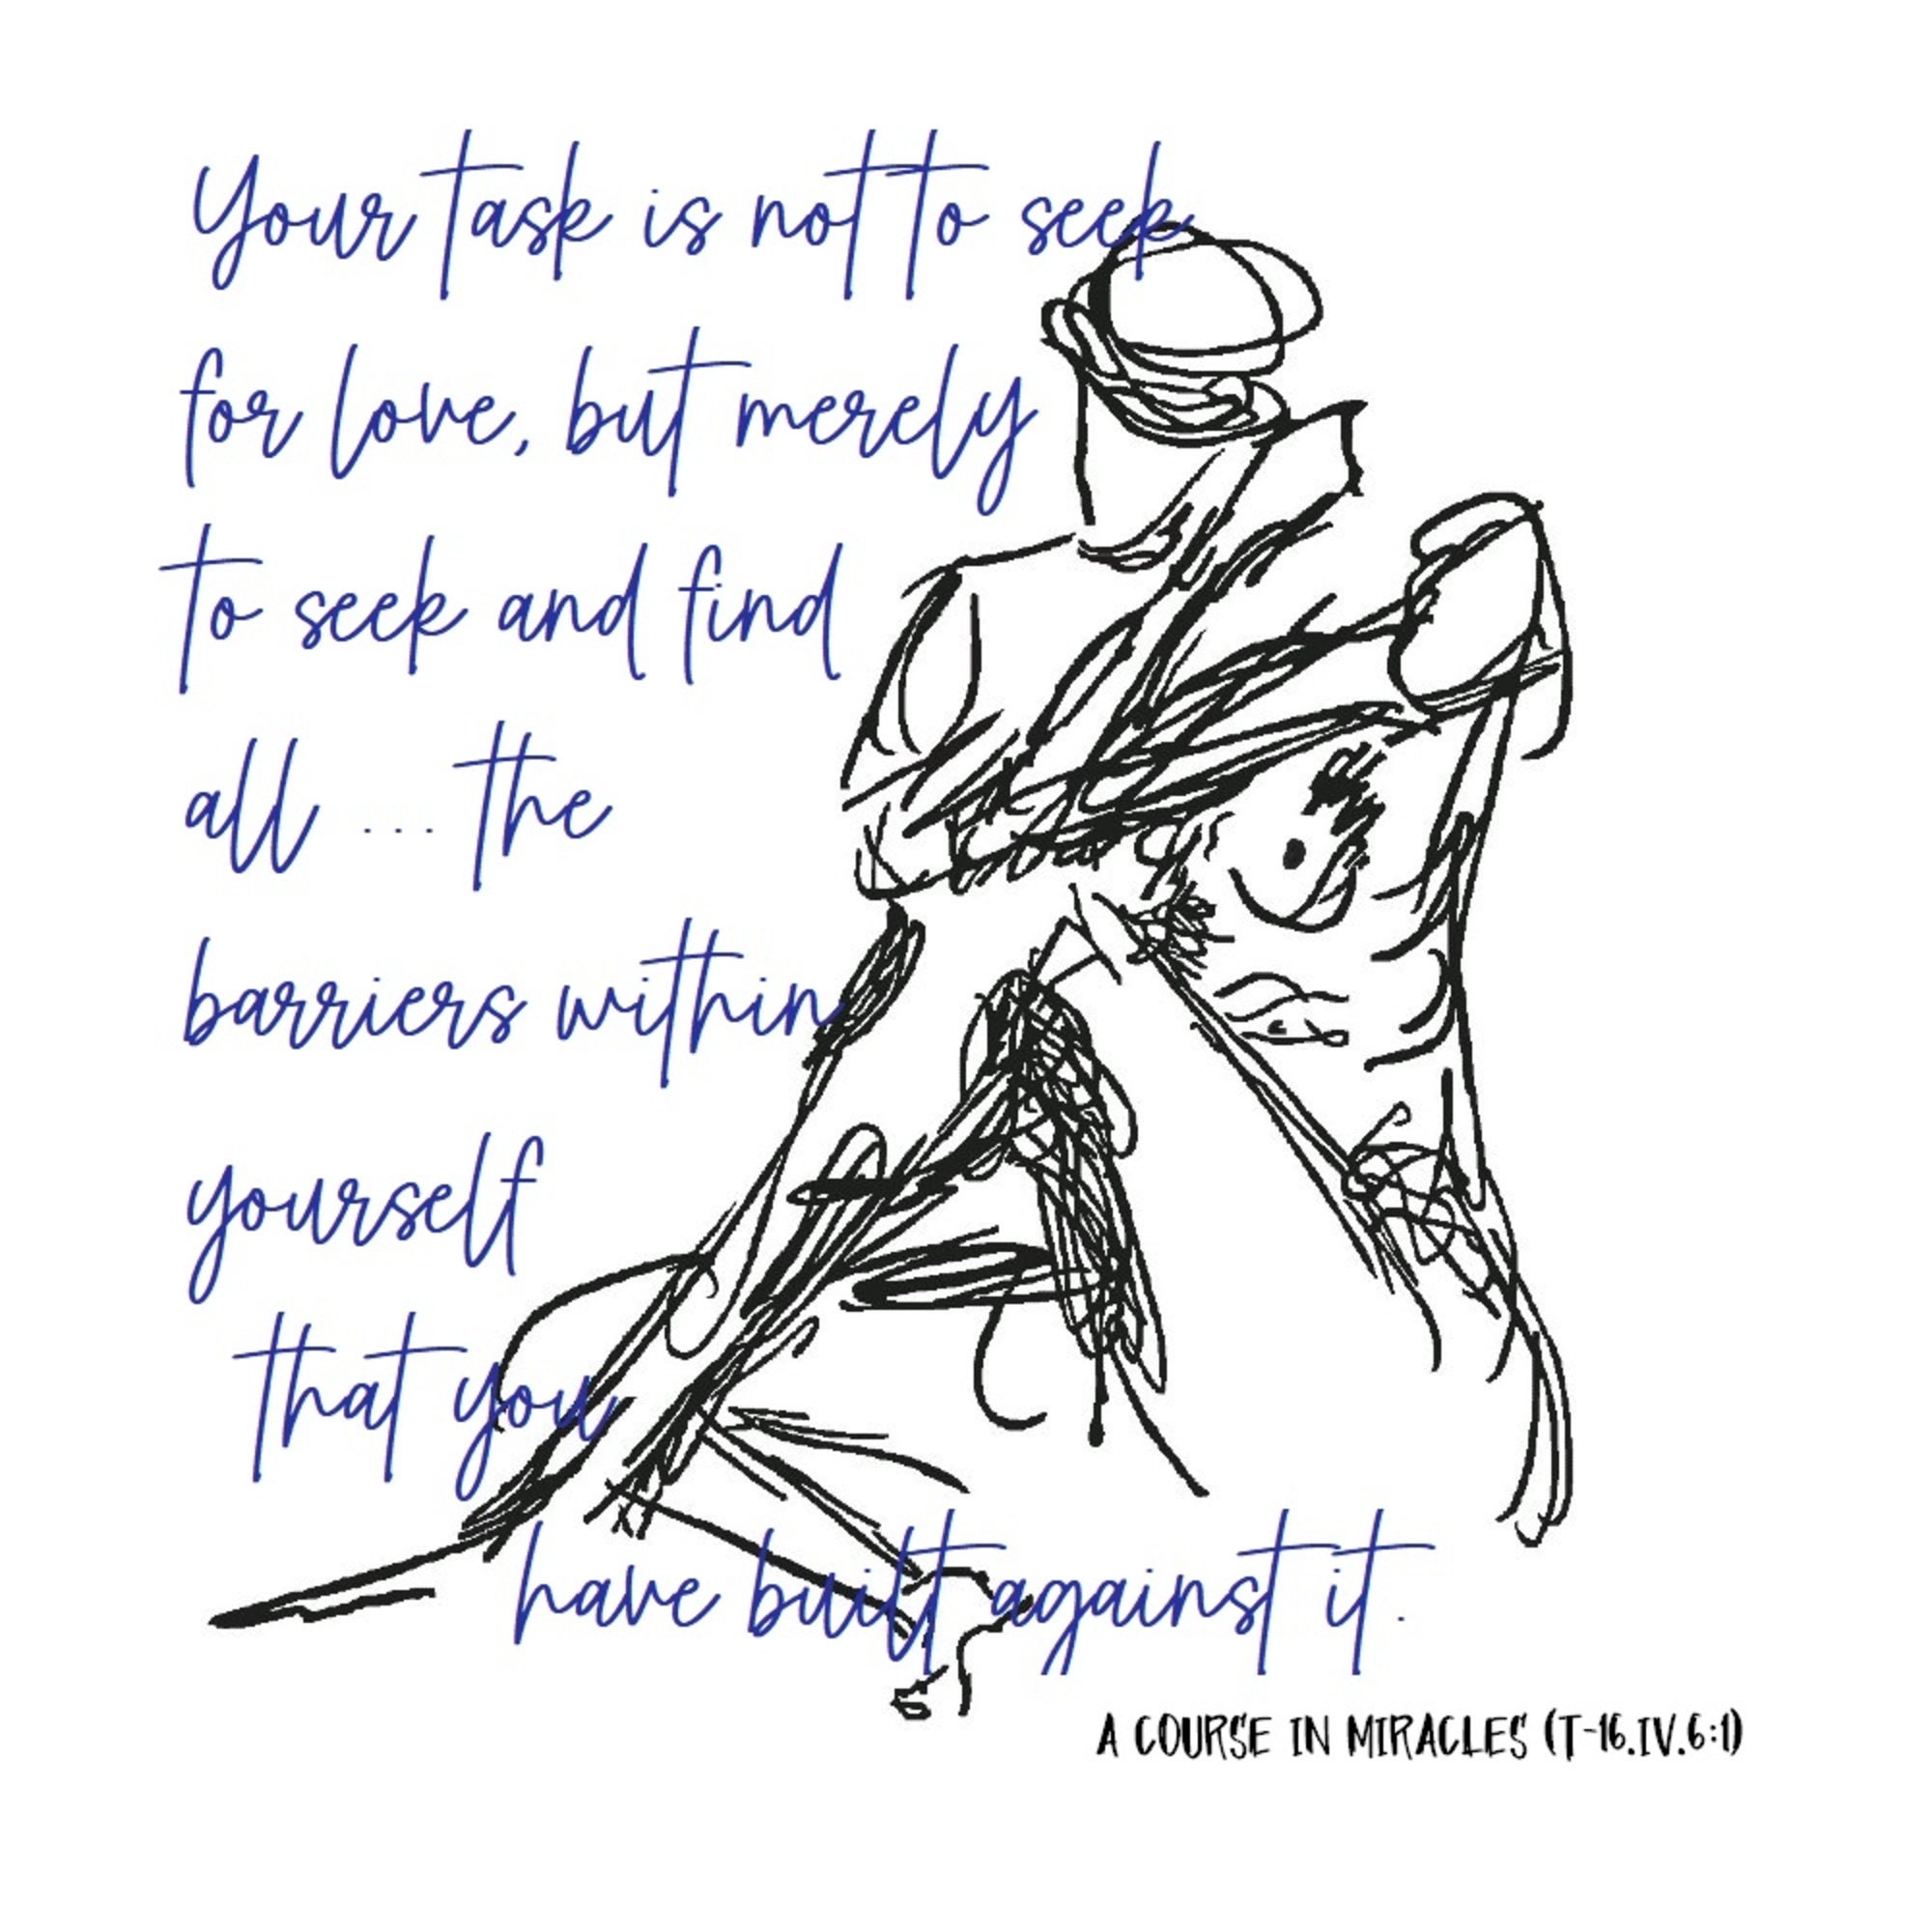 Your task is not to seek
for love, but merely
to seek and find
all ... the
barriers within
yourself
that you
have built against it.
A COURSE IN MIRACLES (T-16.IV.6:1)